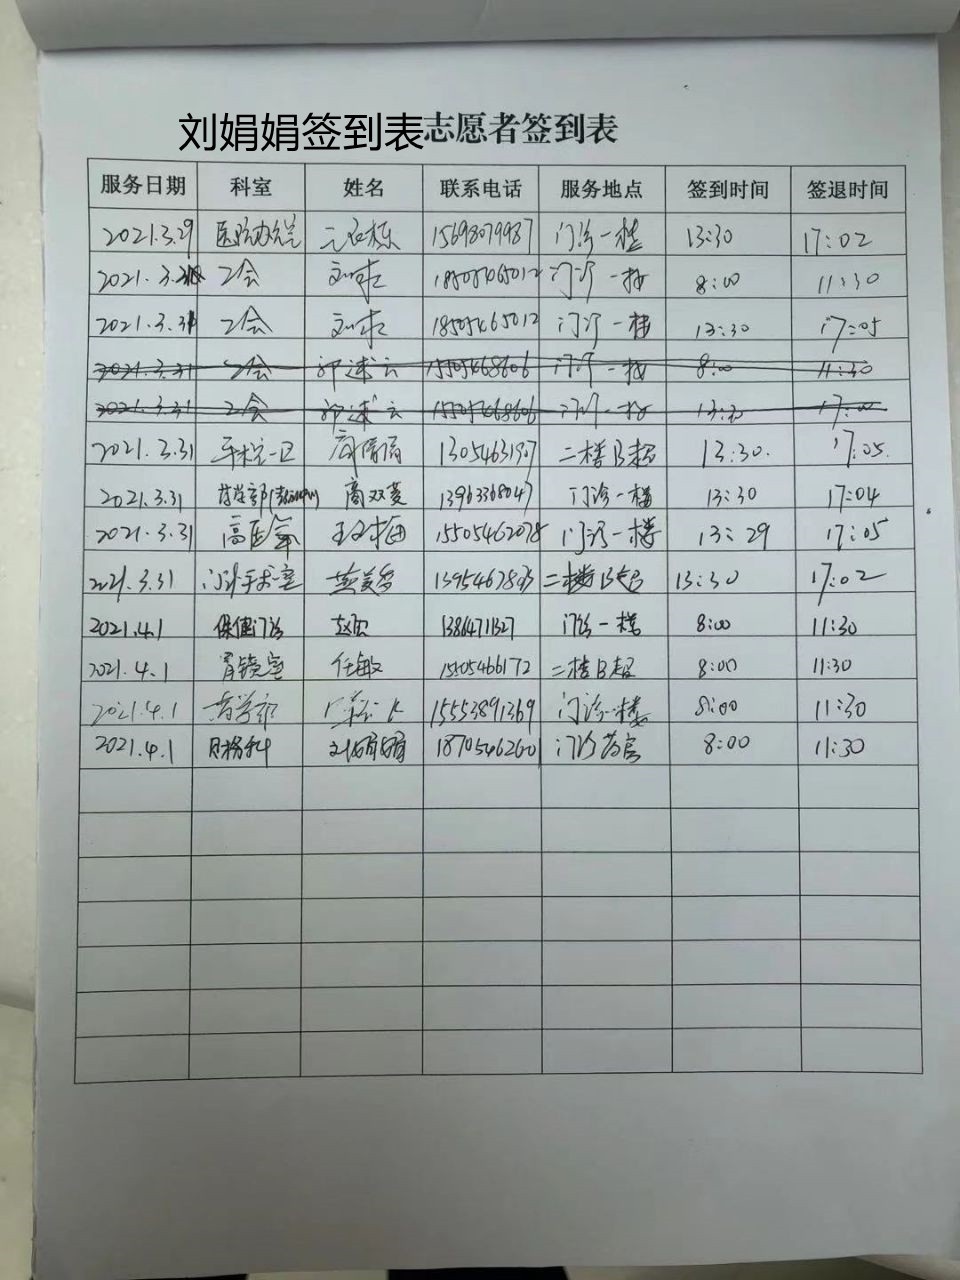 刘娟娟签到表志愿者签到表
服务日期 科室 姓名 联系电话 服务地点 签到时间 签退时间
2021.3.29 15698079987 门诊一楼 13:30 17:02
工会 门诊一楼 8:00 11:30
2021.3.31 工会 18505465012 门诊一楼 13:30 17:05
2021.3.31 工会 15505468606 门诊一楼 8:00 11:30
2021.3.31 工会 15505468606 门诊一楼 13:30 17:00
2021.3.31 二楼B超 13:30. 17:05.
2021.3.31 商双菱 13963368047 门诊一楼 13:30 17:04
2021.3.31 15505462078 门诊一楼 13:29 17:05
2021.3.31 门诊手术室 二楼B超 13:30 17:02
2021.4.1 保健门诊 赵欣 门诊一楼 8:00 11:30
2021.4.1 胃镜室 任敏 15505466172 二楼B超 8:00 11:30
2021.4.1 药学部 15553891369 门诊一楼 8:00 11:30
2021.4.1 财务科 刘娟娟 18705462601 门诊药房 8:00 11:30